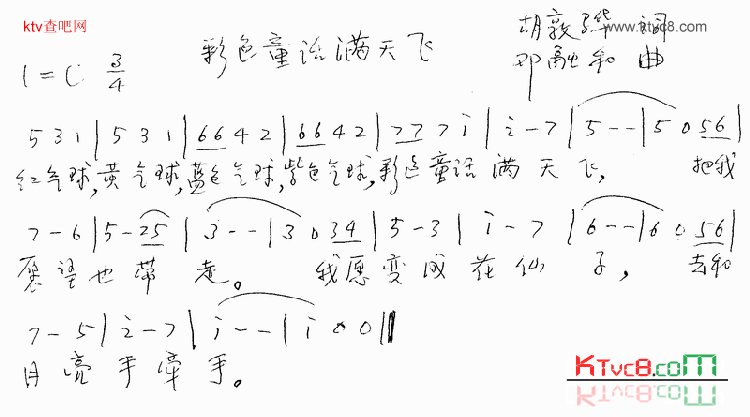 ktv查吧网
www.ktvc8.com
彩色童话满天飞
胡敦骅 词
1=C 3/4
邓融和 曲
5 3 1 | 5 3 1 | 6 6 4 2 | 6 6 4 2 | 7 7 7 i | i - 7 | 5 - - | 5 0 5 6 |
红气球,黄气球,蓝色气球,紫色气球,彩色童话满天飞, 把我
7 - 6 | 5 - 2 5 | 3 - - | 3 0 3 4 | 5 - 3 | i - 7 | 6 - - | 6 0 5 6 |
愿望也带走。 我愿变成花仙子, 去和
7 - 5 | 2 - 7 | i - - | i 0 0 ||
月亮手牵手。
KTVc8.com